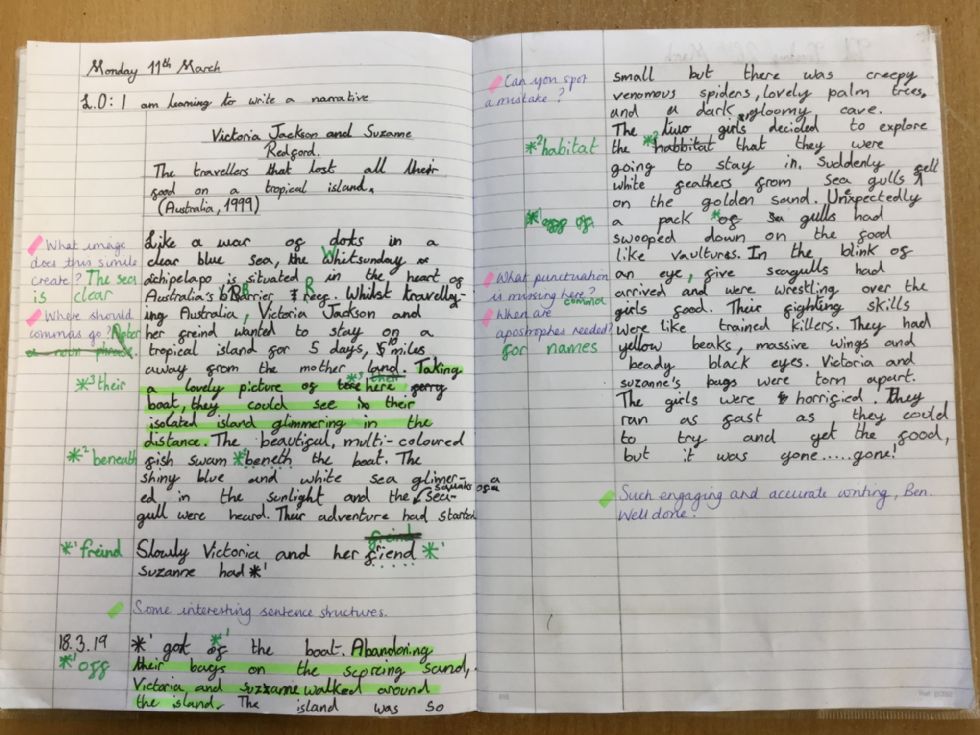 Monday 11th March
L.O: I am learning to write a narrative
Victoria Jackson and Suzane
Redford.
The travellers that lost all their
food on a tropical island.
(Australia, 1999)
Like a war of dots in a
clear blue sea, the Whitsunday
achipelapo is situated in the heart of
Australia's Barrier Reef. Whilst travell-
ing Australia, Victoria Jackson and
her freind wanted to stay on a
tropical island for 5 days, 10 miles
away from the mother land. Taking
a lovely picture of there ferry
boat, they could see in their
isolated island glimmering in the
distance. The beautiful, multi-coloured
fish swam *2 beneth the boat. The
shiny blue and white sea glimer-
ed in the sunlight and the squaks of a sea-
gull were heard. Their adventure had started
Slowly Victoria and her friend *1
Suzanne had *1
Some interesting sentence structures.
18.3.19
*1 got of the boat. Abandoning
their bags on the scorcing sand,
Victoria and Suzzanne walked around
the island. The island was so
What image
does this simile
create? The sea
is clear
Where should
commas go? After
a noun phrase.
*3 their
*2 beneath
*1 freind
*1 off
small but there was creepy
venomous spiders, lovely palm trees,
and a dark, gloomy cave.
The two girls decided to explore
the *2 habbitat that they were
going to stay in. Suddenly
white feathers from sea gulls fell
on the golden sand. Unexpectedly
a pack of gulls had
swooped down on the food
like vaultures. In the blink of
an eye, five seagulls had
arrived and were wrestling over the
girls food. Their fighting skills
were like trained killers. They had
yellow beaks, massive wings and
beady black eyes. Victoria and
suzanne's bags were torn apart.
The girls were horrified. They
ran as fast as they could
to try and get the food,
but it was gone.....gone!
Can you spot
a mistake?
*2 habitat
What punctuation
is missing here? comma
When are
apostrophes needed?
for names
Such engaging and accurate writing, Ben.
Well done!